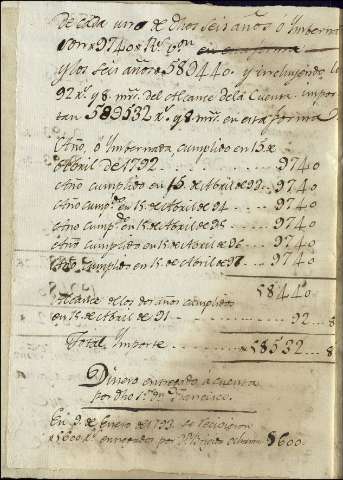 De cada uno de dhos seis años o Imberna
son 9740 Rs vn en esta forma
y los seis años 58440. y incluyendo los
92 rs. y 8. mrs. del Alcance de la Cuenta impor
tan 58532 rs. y 8. mrs. en esta forma
Año, o Imbernada cumplido en 15 de
Abril de 1792 ........ 9740
Año cumplido en 15 de Abril de 93 .. 9740
Año cumpdo en 15 de Abril de 94 .... 9740
Año cumpdo en 15 de Abril de 95 .... 9740
Año cumplido en 15 de Abril de 96 ... 9740
Año cumplido en 15 de Abril de 97 .. 9740
58440
Alcance de los dos años cumplidos
en 15 de Abril de 91 ........ 92 .. 8
Total Importe ..... 58532 .. 8
Dinero entregado a cuenta
por dho Sr. dn. Francisco.
En 9 de Enero de 1793 se recivieron
8600 rs. entregados por 8600